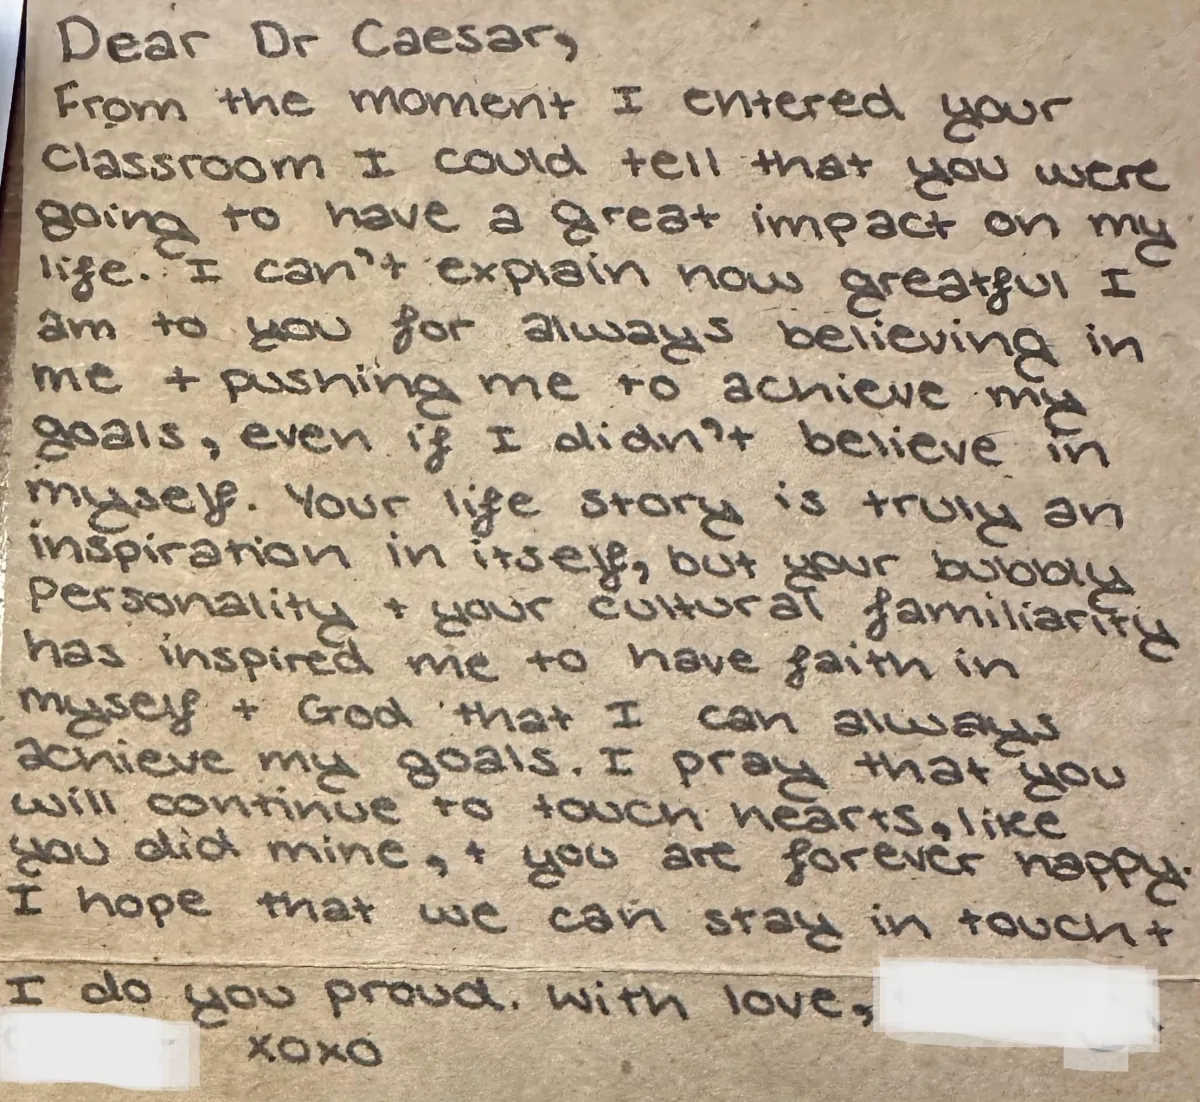 Dear Dr Caesar,
From the moment I entered your
classroom I could tell that you were
going to have a great impact on my
life. I can't explain how greatful I
am to you for always believing in
me + pushing me to achieve my
goals, even if I didn't believe in
myself. Your life story is truly an
inspiration in itself, but your bubbly
personality + your cultural familiarity
has inspired me to have faith in
myself + God that I can always
achieve my goals. I pray that you
will continue to touch hearts, like
you did mine, + you are forever happy.
I hope that we can stay in touch +
I do you proud. With love,
xoxo